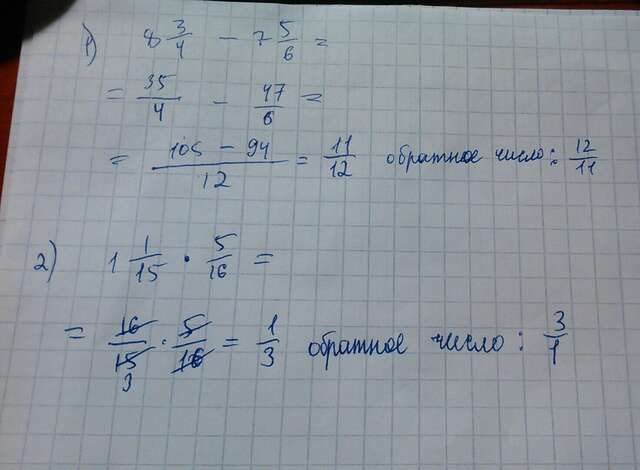 1) 8 3/4 - 7 5/6 =
= 35/4 - 47/6 =
= (105 - 94)/12 = 11/12 обратное число: 12/11
2) 1 1/15 · 5/16 =
= 16/15 · 5/16 = 1/3 обратное число: 3/1
3